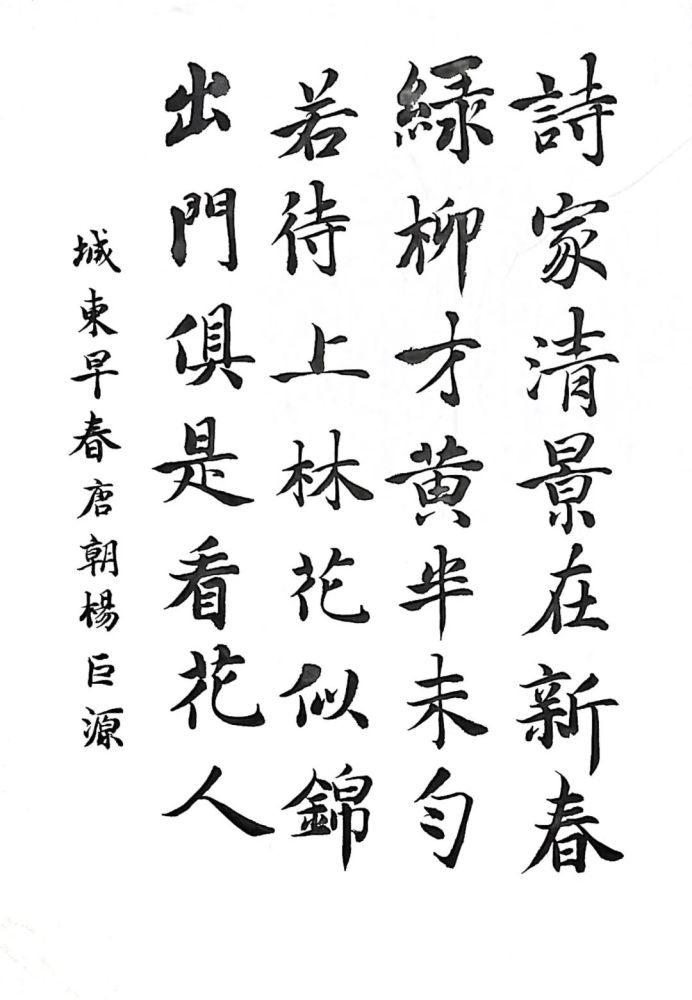 詩家清景在新春
緑柳才黄半未匀
若待上林花似錦
出門俱是看花人
城東早春唐朝楊巨源